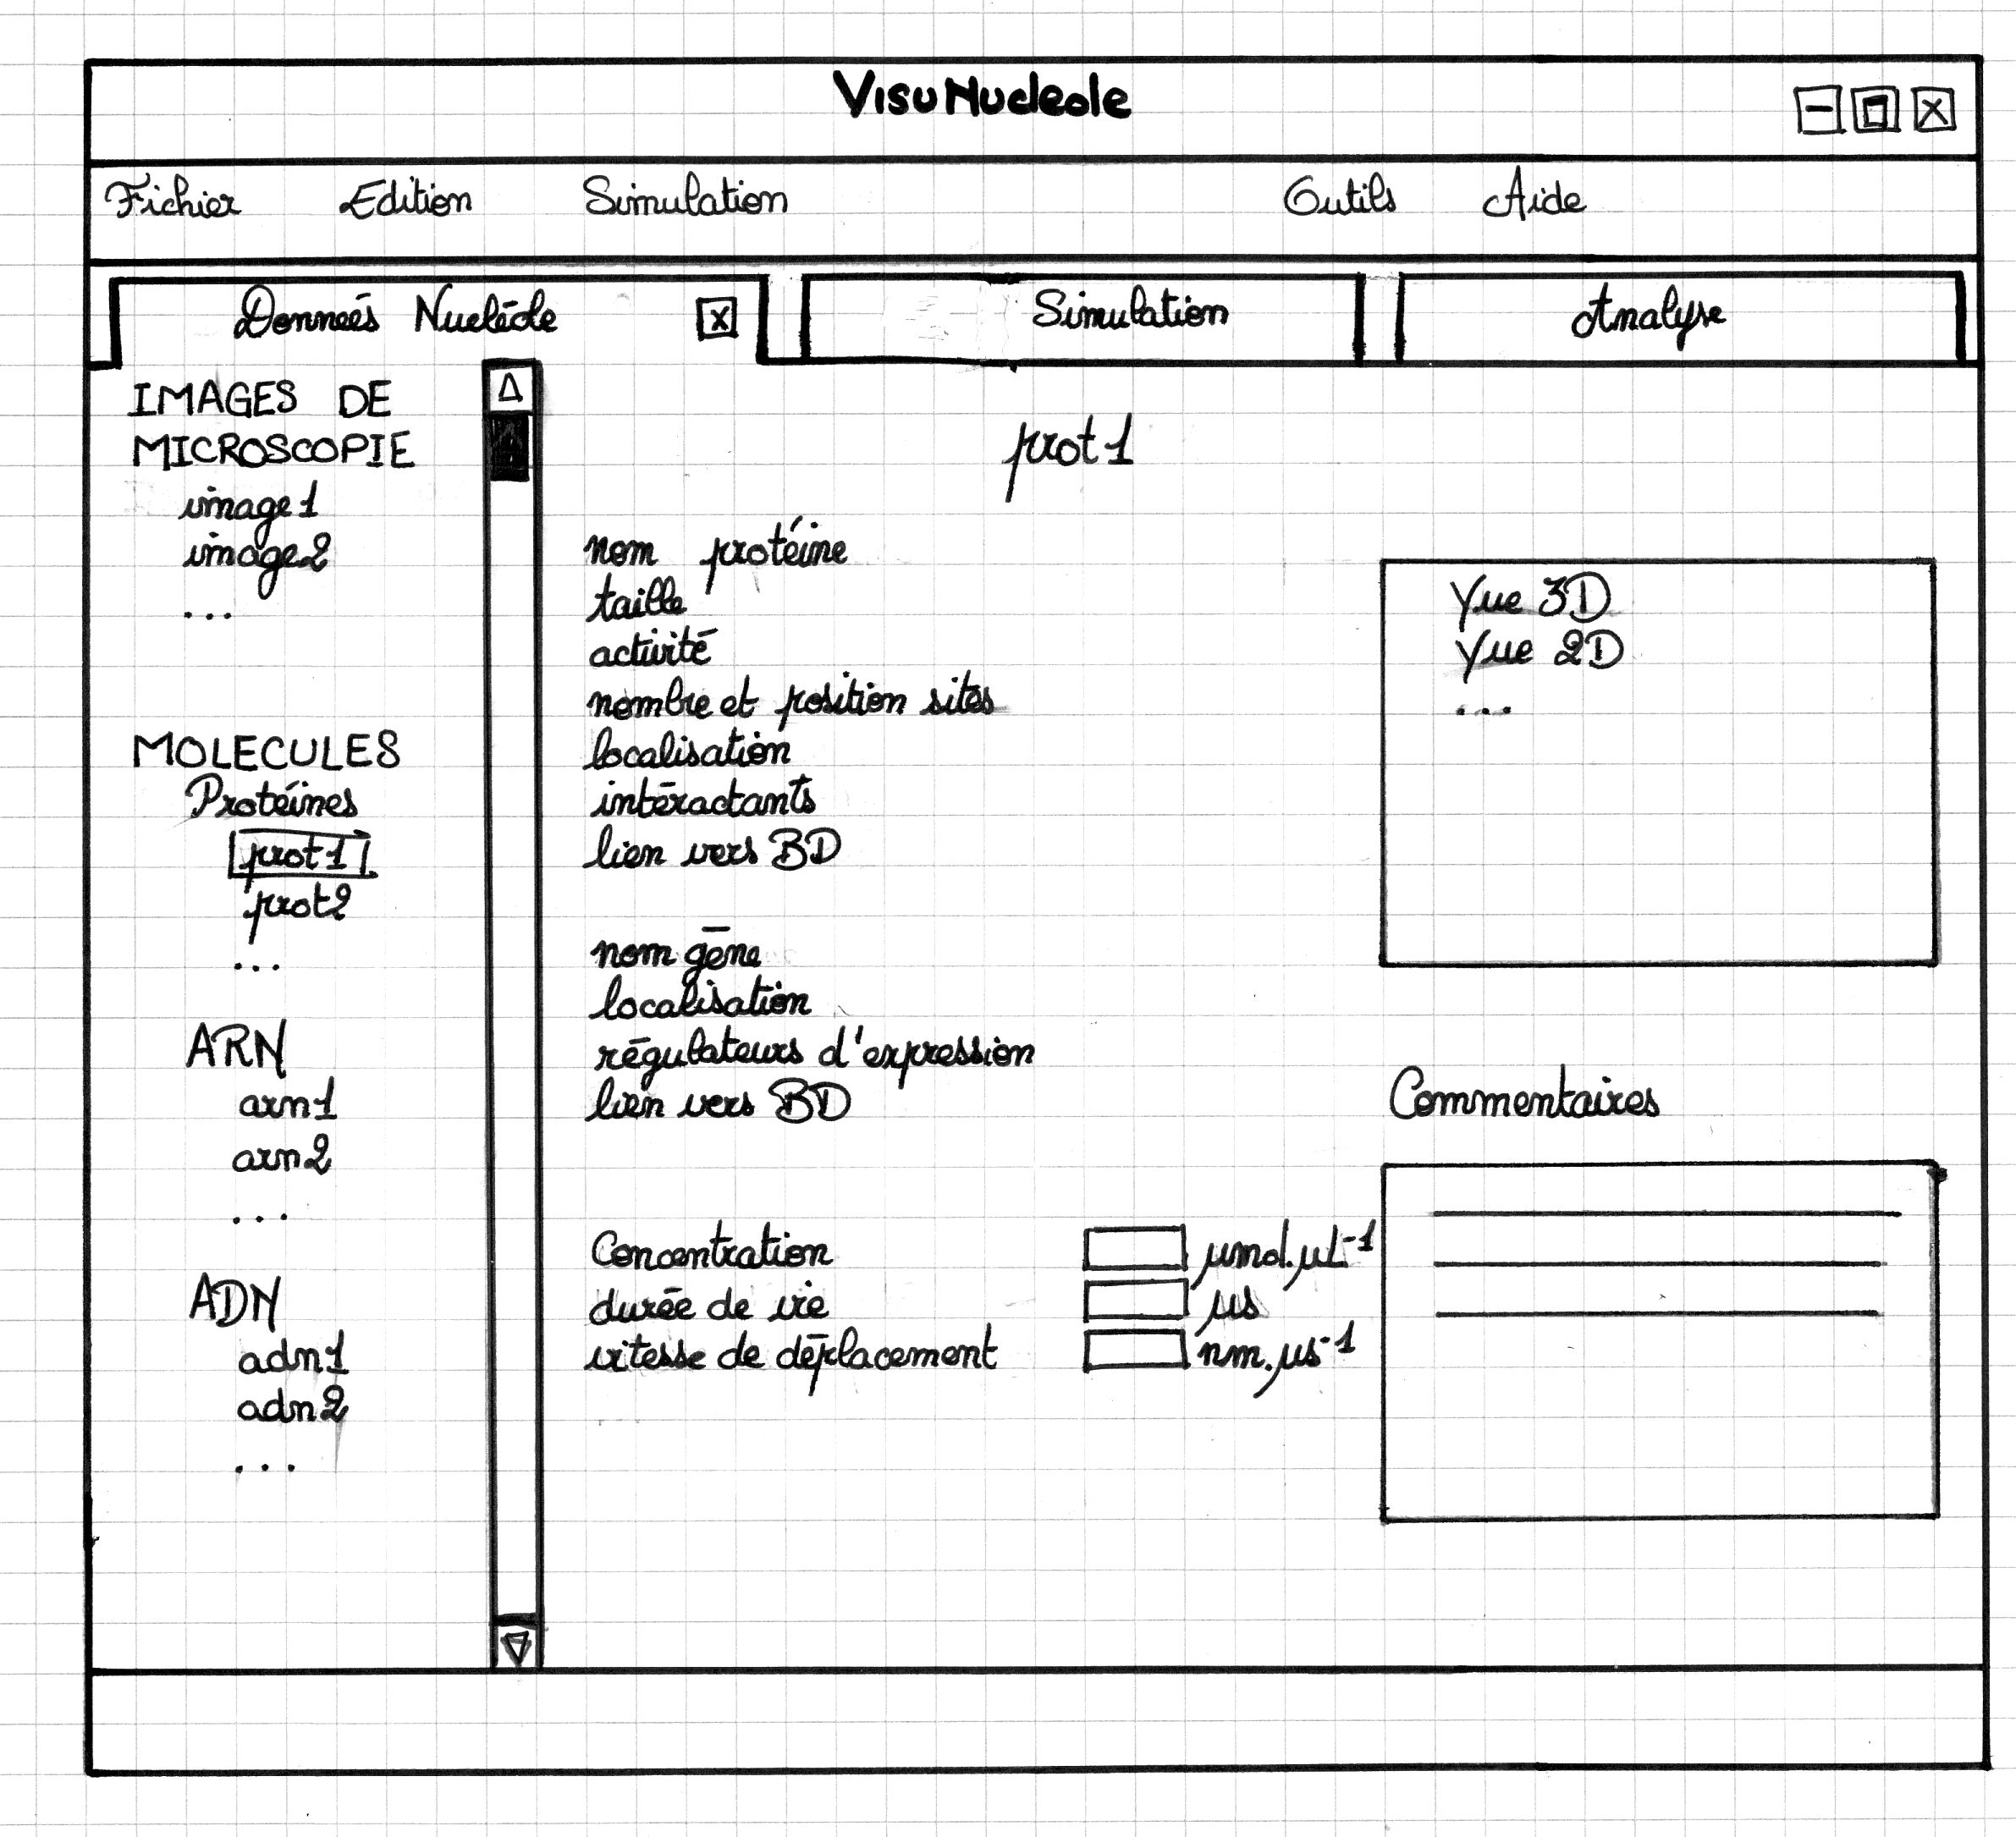 VisuNucleole
Fichier Edition Simulation Outils Aide
Données Nucléole X Simulation Analyse
IMAGES DE
MICROSCOPIE
image1
image2
...
MOLECULES
Protéines
prot1
prot2
...
ARN
arn1
arn2
...
ADN
adn1
adn2
...
prot1
nom protéine
taille
activité
nombre et position sites
localisation
intéractants
lien vers BD
nom gène
localisation
régulateurs d'expression
lien vers BD
Concentration µmol.µL⁻¹
durée de vie µs
vitesse de déplacement nm.µs⁻¹
Vue 3D
Vue 2D
...
Commentaires